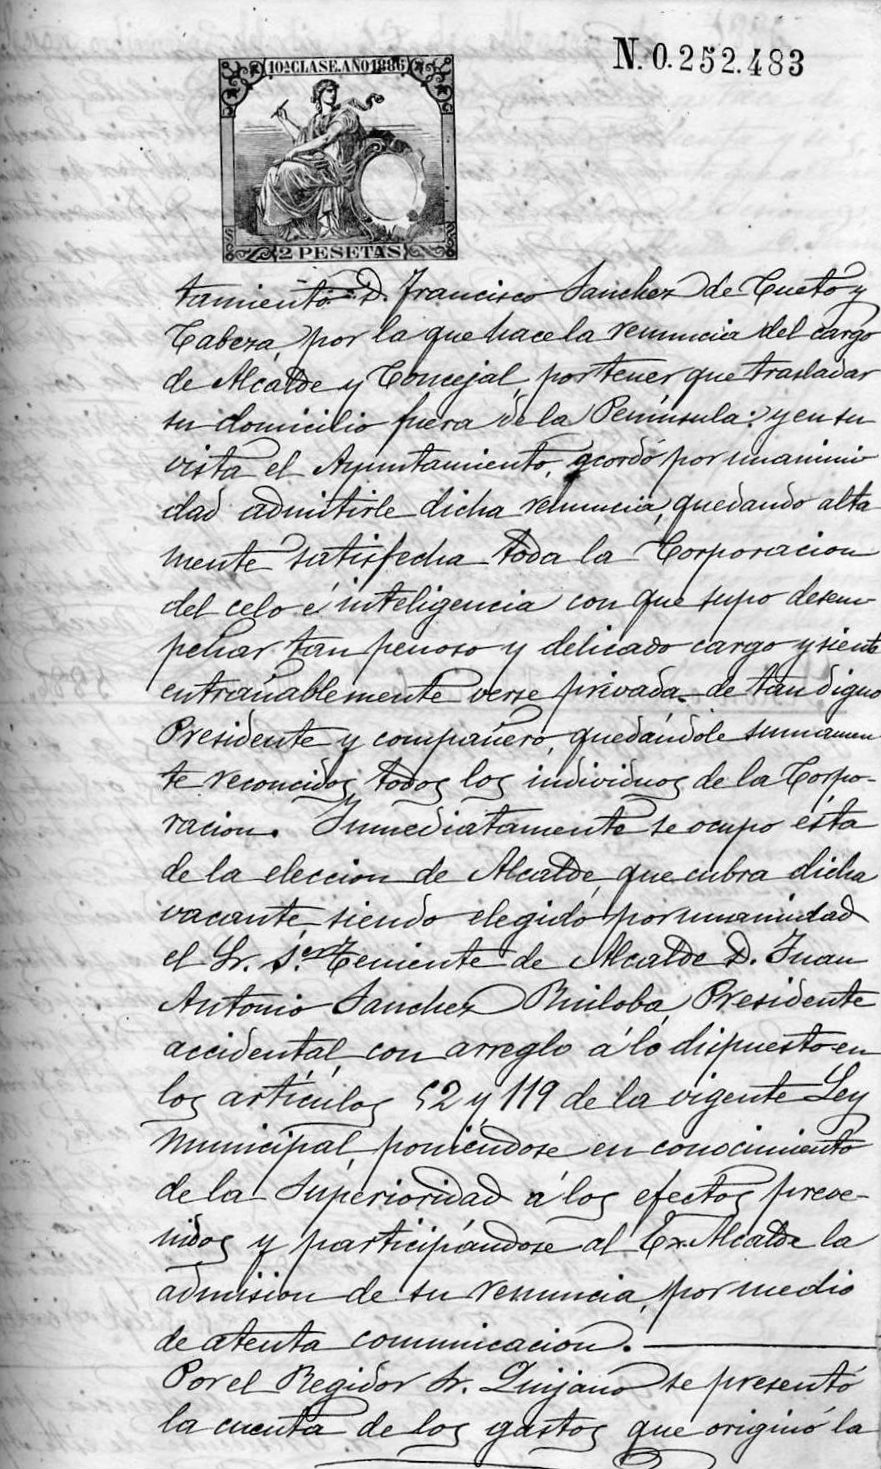 N.0.252.483
10ª CLASE.AÑO 1886
2 PESETAS
tamiento D. Francisco Sanchez de Cueto y
Cabeza, por la que hace la renuncia del cargo
de Alcalde y Concejal, por tener que trasladar
su domicilio fuera de la Península: y en su
vista el Ayuntamiento, acordó por unanimi
dad admitirle dicha renuncia, quedando alta
mente satisfecha toda la Corporacion
del celo é inteligencia con que supo desem
peñar tan penoso y delicado cargo y siente
entrañablemente verse privada de tan digno
Presidente y compañero, quedándole sumamen
te reconcidos todos los individuos de la Corpo-
racion. Inmediatamente se ocupo ésta
de la eleccion de Alcalde, que cubra dicha
vacante, siendo elegido por unanimidad
el Sr. 1.er Teniente de Alcalde D. Juan
Antonio Sanchez Ruiloba, Presidente
accidental, con arreglo á lo dispuesto en
los artículos 52 y 119 de la vigente Ley
Municipal, poniéndose en conocimiento
de la Superioridad á los efectos preve-
nidos y participándose al Ex-Alcalde la
admision de su renuncia, por medio
de atenta comunicacion.
Por el Regidor Sr. Quijano se presentó
la cuenta de los gastos que originó la